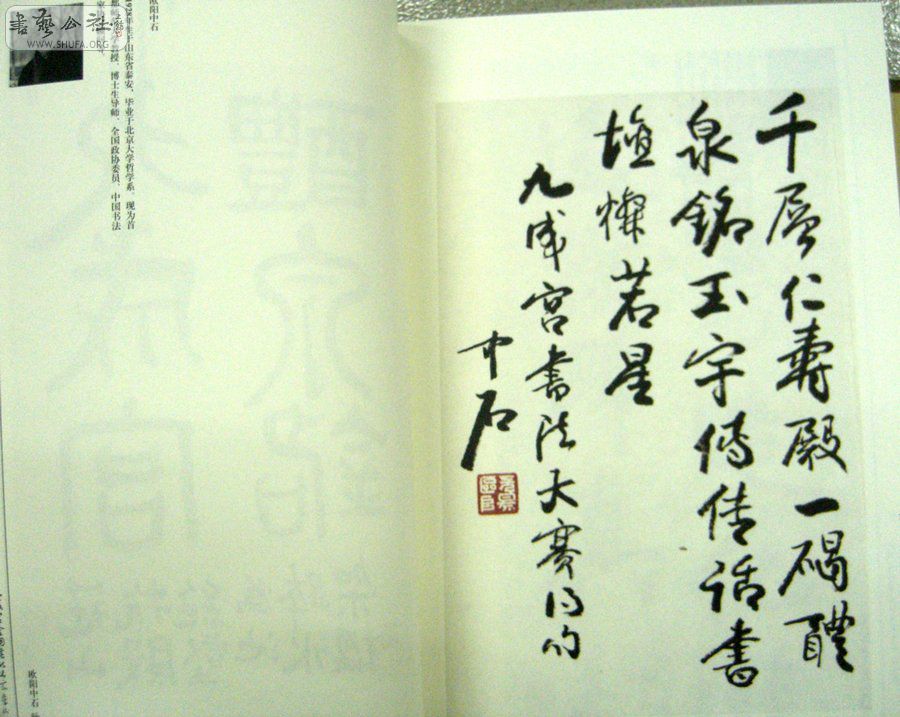 千層仁壽殿一碣醴
泉銘玉宇傳佳話書
壇燦若星
九成宮書法大賽得句
中石
欧阳中石
1928年生于山东省泰安，毕业于北京大学哲学系，现为首
都师教授、博士生导师、全国政协委员、中国书法
欧阳中石
書藝公社
WWW.SHUFA.ORG